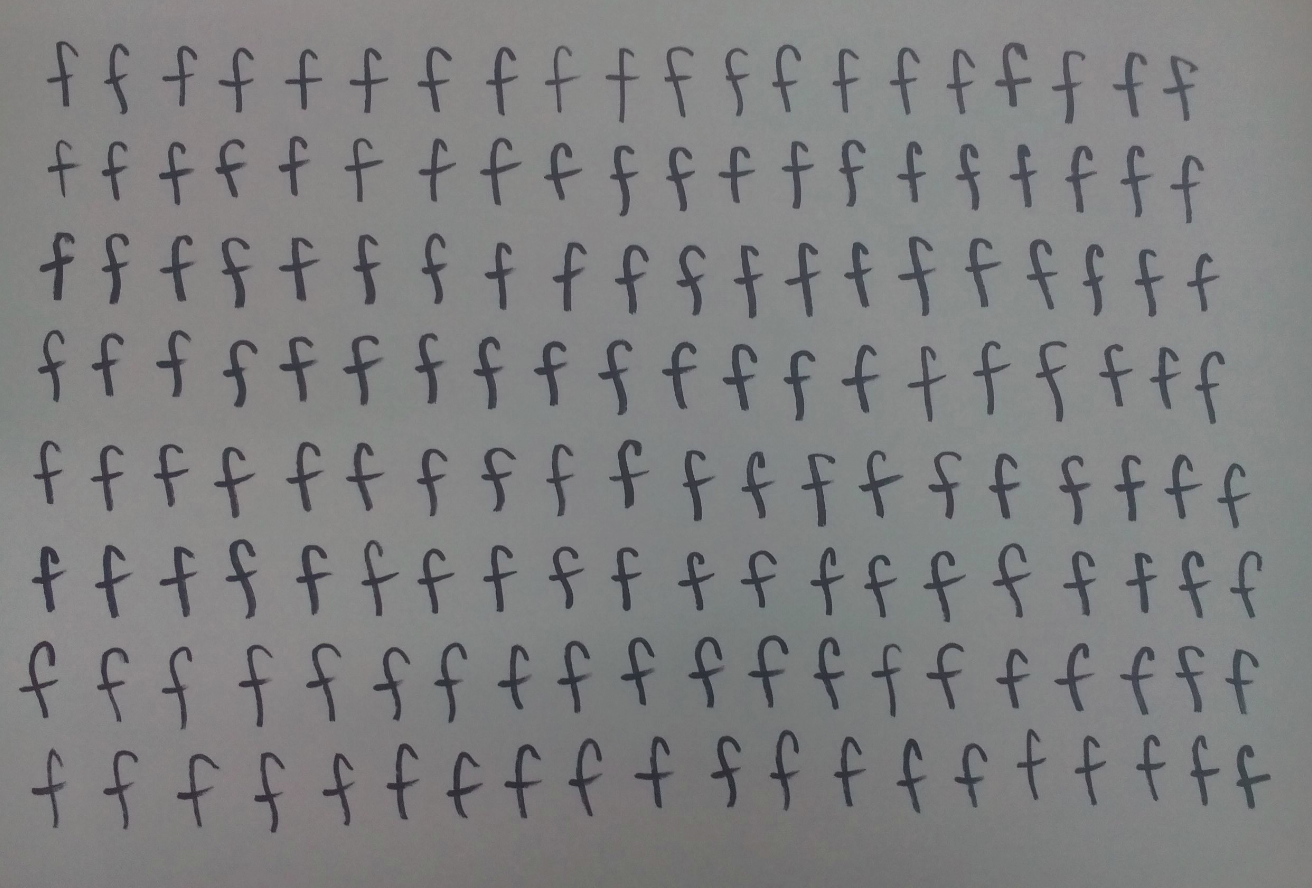 f f f f f f f f f f f f f f f f f f f f
f f f f f f f f f f f f f f f f f f f f
f f f f f f f f f f f f f f f f f f f f
f f f f f f f f f f f f f f f f f f f f
f f f f f f f f f f f f f f f f f f f f
f f f f f f f f f f f f f f f f f f f f
f f f f f f f f f f f f f f f f f f f f
f f f f f f f f f f f f f f f f f f f f